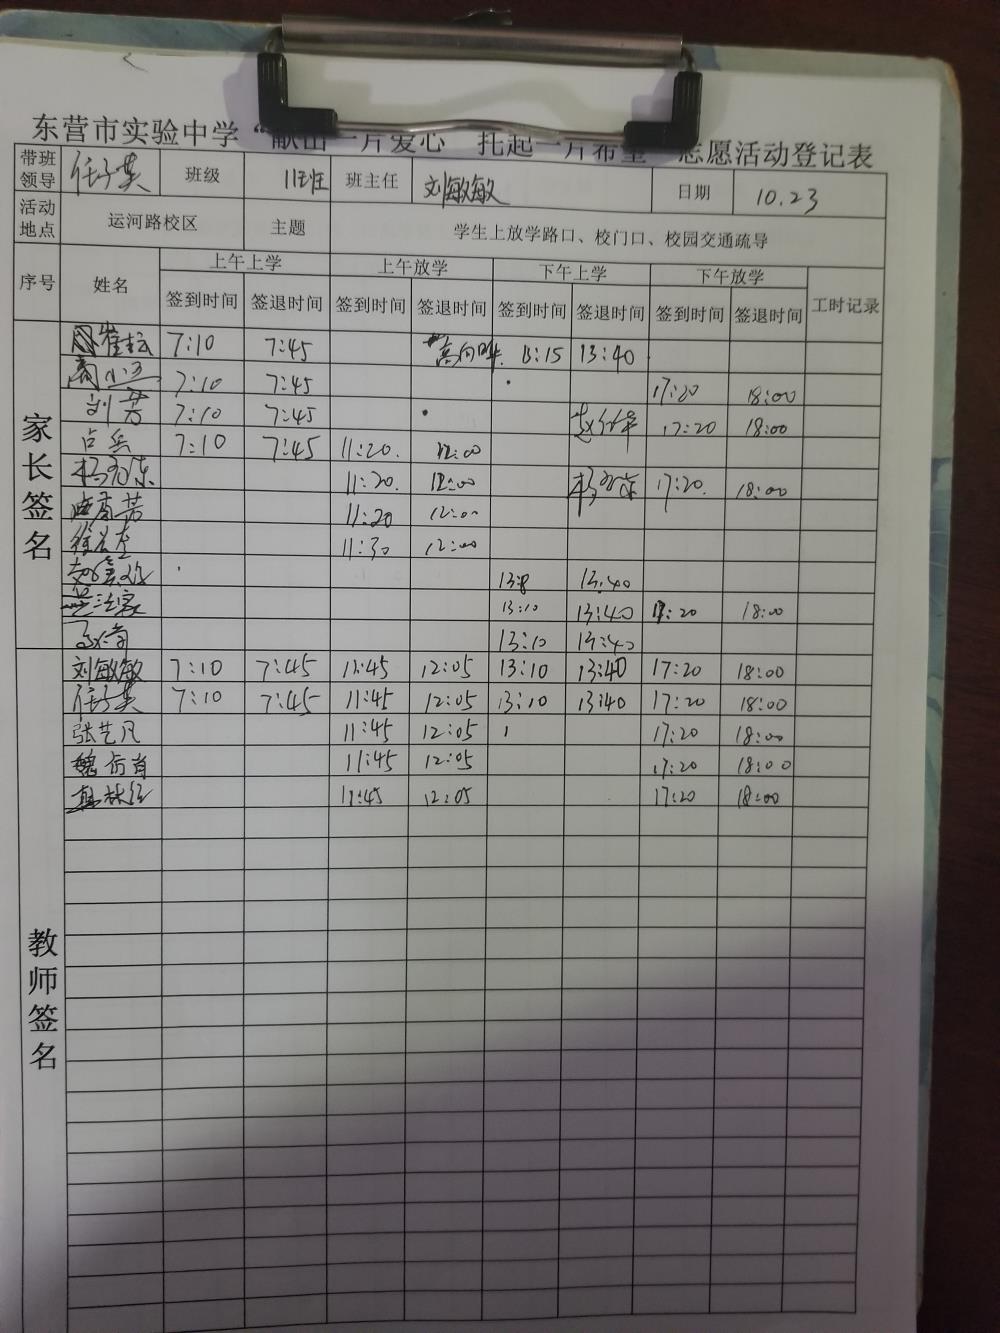 东营市实验中学“献出一片爱心 托起一片希望”志愿活动登记表
带班领导 任子英 班级 11班 班主任 刘敏敏 日期 10.23
活动地点 运河路校区 主题 学生上放学路口、校门口、校园交通疏导
序号 姓名 上午上学 上午放学 下午上学 下午放学 工时记录
签到时间 签退时间 签到时间 签退时间 签到时间 签退时间 签到时间 签退时间
家长签名
7:10 7:45 13:40
7:10 7:45 17:20 18:00
刘芳 7:10 7:45 17:20 18:00
7:10 7:45 11:20. 12:00
11:20. 12:00 17:20. 18:00
11:20 12:00
11:30 12:00
13:40
13:10 13:40 17:20 18:00
13:10 13:40
教师签名
刘敏敏 7:10 7:45 11:45 12:05 13:10 13:40 17:20 18:00
任子英 7:10 7:45 11:45 12:05 13:10 13:40 17:20 18:00
张艺凡 11:45 12:05 17:20 18:00
11:45 12:05 17:20 18:00
11:45 12:05 17:20 18:00